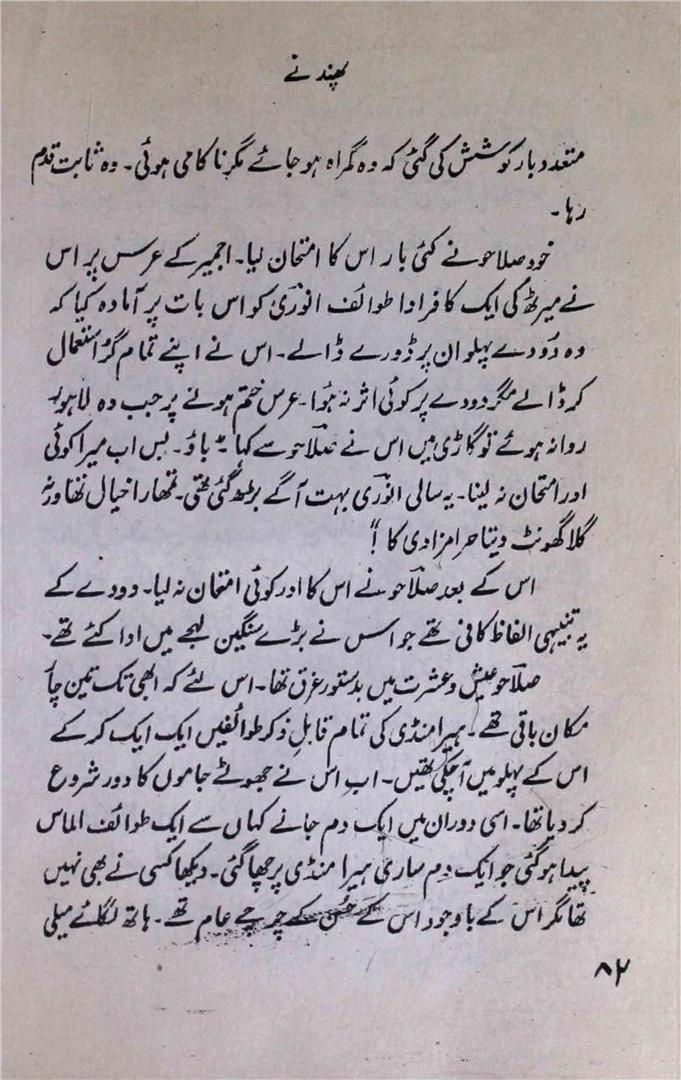 پھندنے
متعدد بار کوشش کی گئی کہ وہ گمراہ ہو جائے مگر ناکامی ہوئی۔ وہ ثابت قدم
رہا۔
خود صلاحو نے کئی بار اس کا امتحان لیا۔ اجمیر کے عرس پر اس
نے میرٹھ کی ایک کافر ادا طوائف انوری کو اس بات پر آمادہ کیا کہ
وہ دودے پہلوان پر ڈورے ڈالے۔ اس نے اپنے تمام گر استعمال
کر ڈالے مگر دودے پر کوئی اثر نہ ہوا۔ عرس ختم ہونے پر جب وہ لاہور
روانہ ہوئے تو گاڑی میں اس نے صلاحو سے کہا "باؤ۔ بس اب میرا کوئی
اور امتحان نہ لینا۔ یہ سالی انوری بہت آگے بڑھ گئی تھی۔ تمھارا خیال تھا ورنہ
گلا گھونٹ دیتا حرامزادی کا!"
اس کے بعد صلاحو نے اس کا اور کوئی امتحان نہ لیا۔ دودے کے
یہ تنبیہی الفاظ کافی تھے جو اس نے بڑے سنگین لہجے میں ادا کئے تھے۔
صلاحو عیش و عشرت میں بدستور غرق تھا۔ اس لئے کہ ابھی تک تین چار
مکان باقی تھے۔ ہیرا منڈی کی تمام قابلِ ذکر طوائفیں ایک ایک کر کے
اس کے پہلو میں آ چکی تھیں۔ اب اس نے جھوٹے جاموں کا دور شروع
کر دیا تھا۔ اسی دوران میں ایک دم جانے کہاں سے ایک طوائف الماس
پیدا ہو گئی جو ایک دم ساری ہیرا منڈی پر چھا گئی۔ دیکھا کسی نے بھی نہیں
تھا مگر اس کے باوجود اس کے حُسن کے چرچے عام تھے۔ ہاتھ لگائے میلی
۸۲